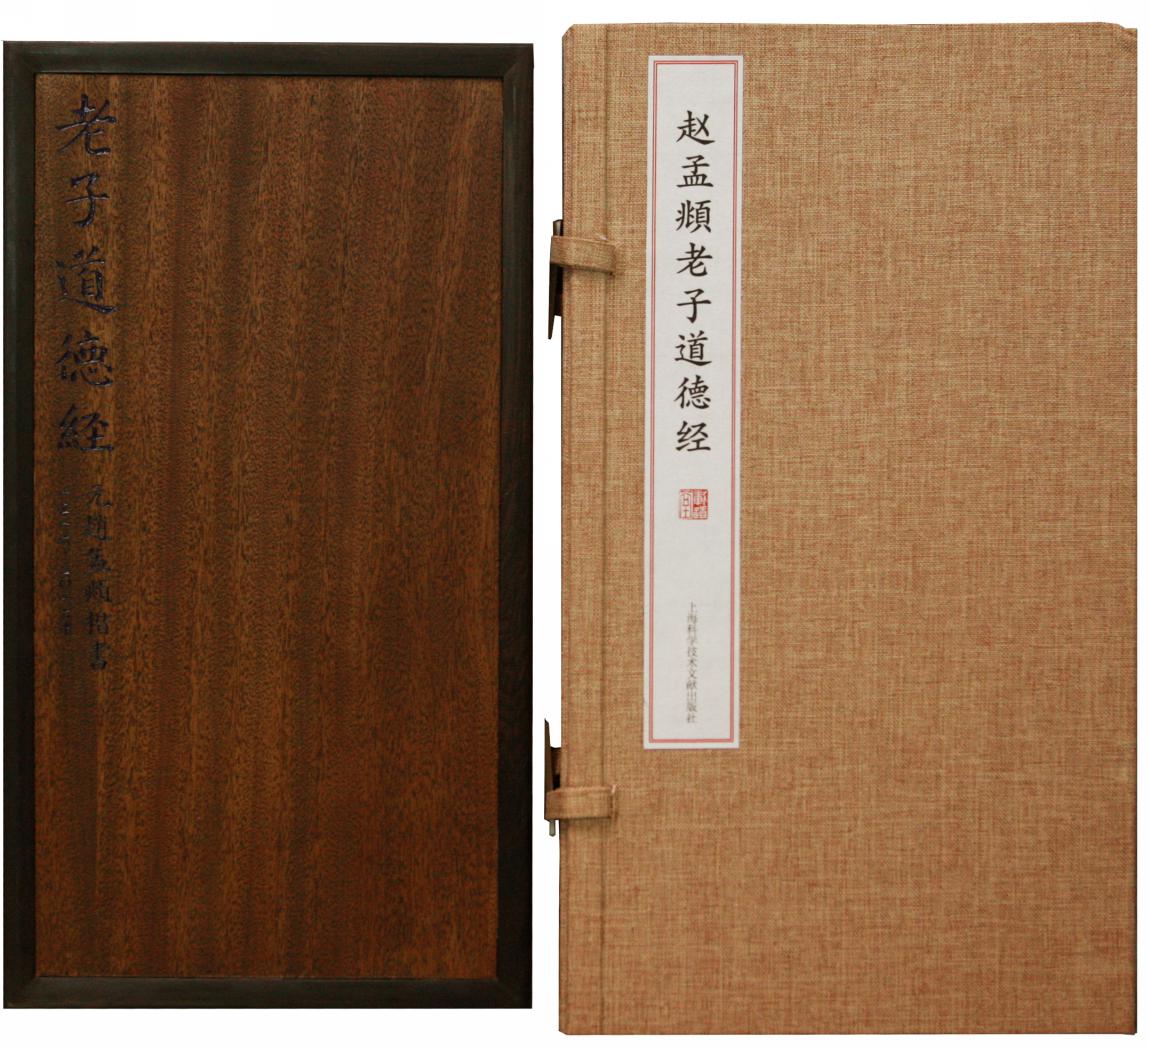 老子道德經
元趙孟頫楷書
赵孟頫老子道德经
上海科学技术文献出版社